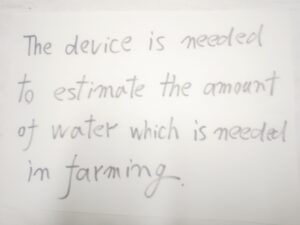 The device is needed
to estimate the amount
of water which is needed
in farming.